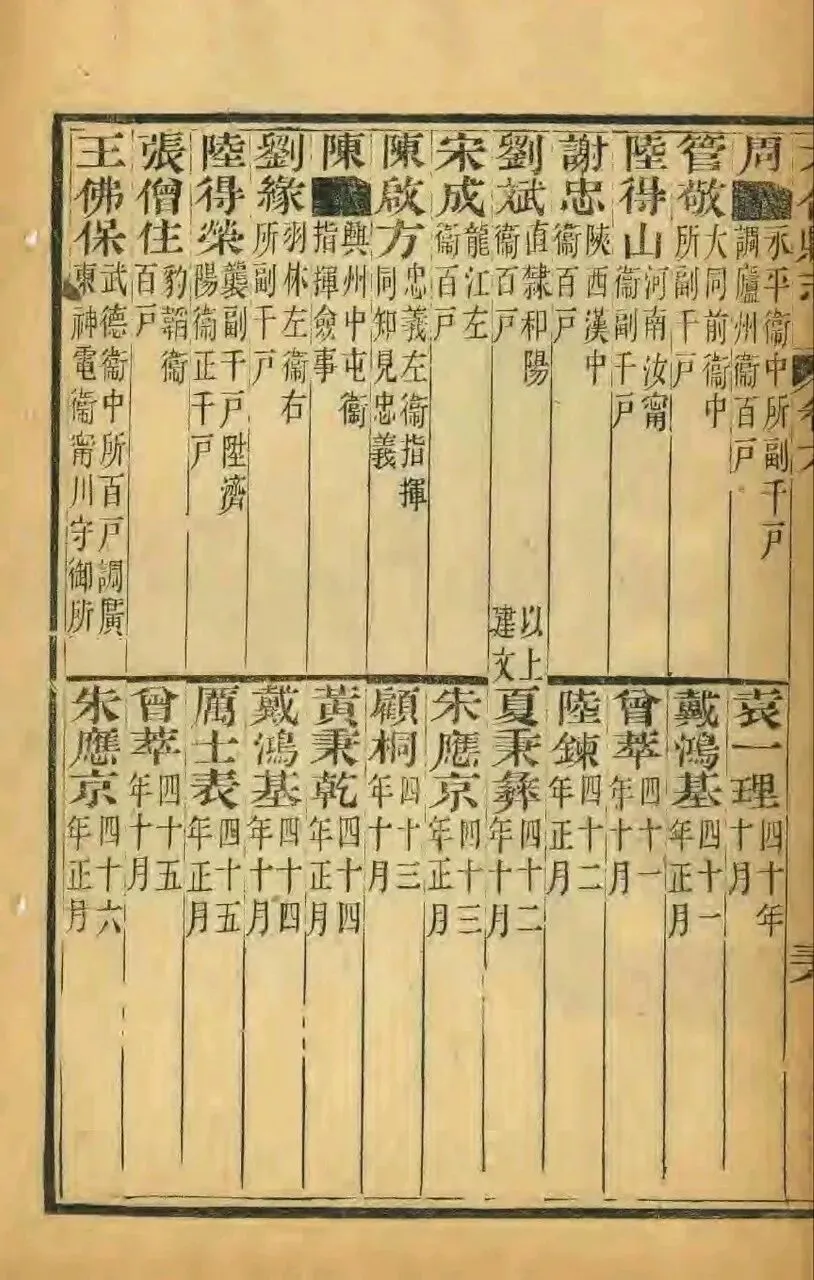 周■永平衞中所副千戸調廬州衞百戸
管敬大同前衞中所副千戸
陸得山河南汝甯衞副千戸
謝忠陝西漢中衞百戸
劉斌直隸和陽衞百戸 以上建文
宋成龍江左衞百戸
陳啟方忠義左衞指揮同知見忠義
陳■興州中屯衞指揮僉事
劉緣羽林左衞右所副千戸
陸得榮襲副千戸陞濟陽衞正千戸
張僧住豹韜衞百戸
王佛保武德衞中所百戸調廣東神電衞甯川守御所
袁一理四十年十月
戴鴻基四十一年正月
曾萃四十一年十月
陸鍊四十二年正月
夏秉彝四十二年十月
朱應京四十三年正月
顧桐四十三年十月
黃秉乾四十四年正月
戴鴻基四十四年十月
厲士表四十五年正月
曾萃四十五年十月
朱應京四十六年正月